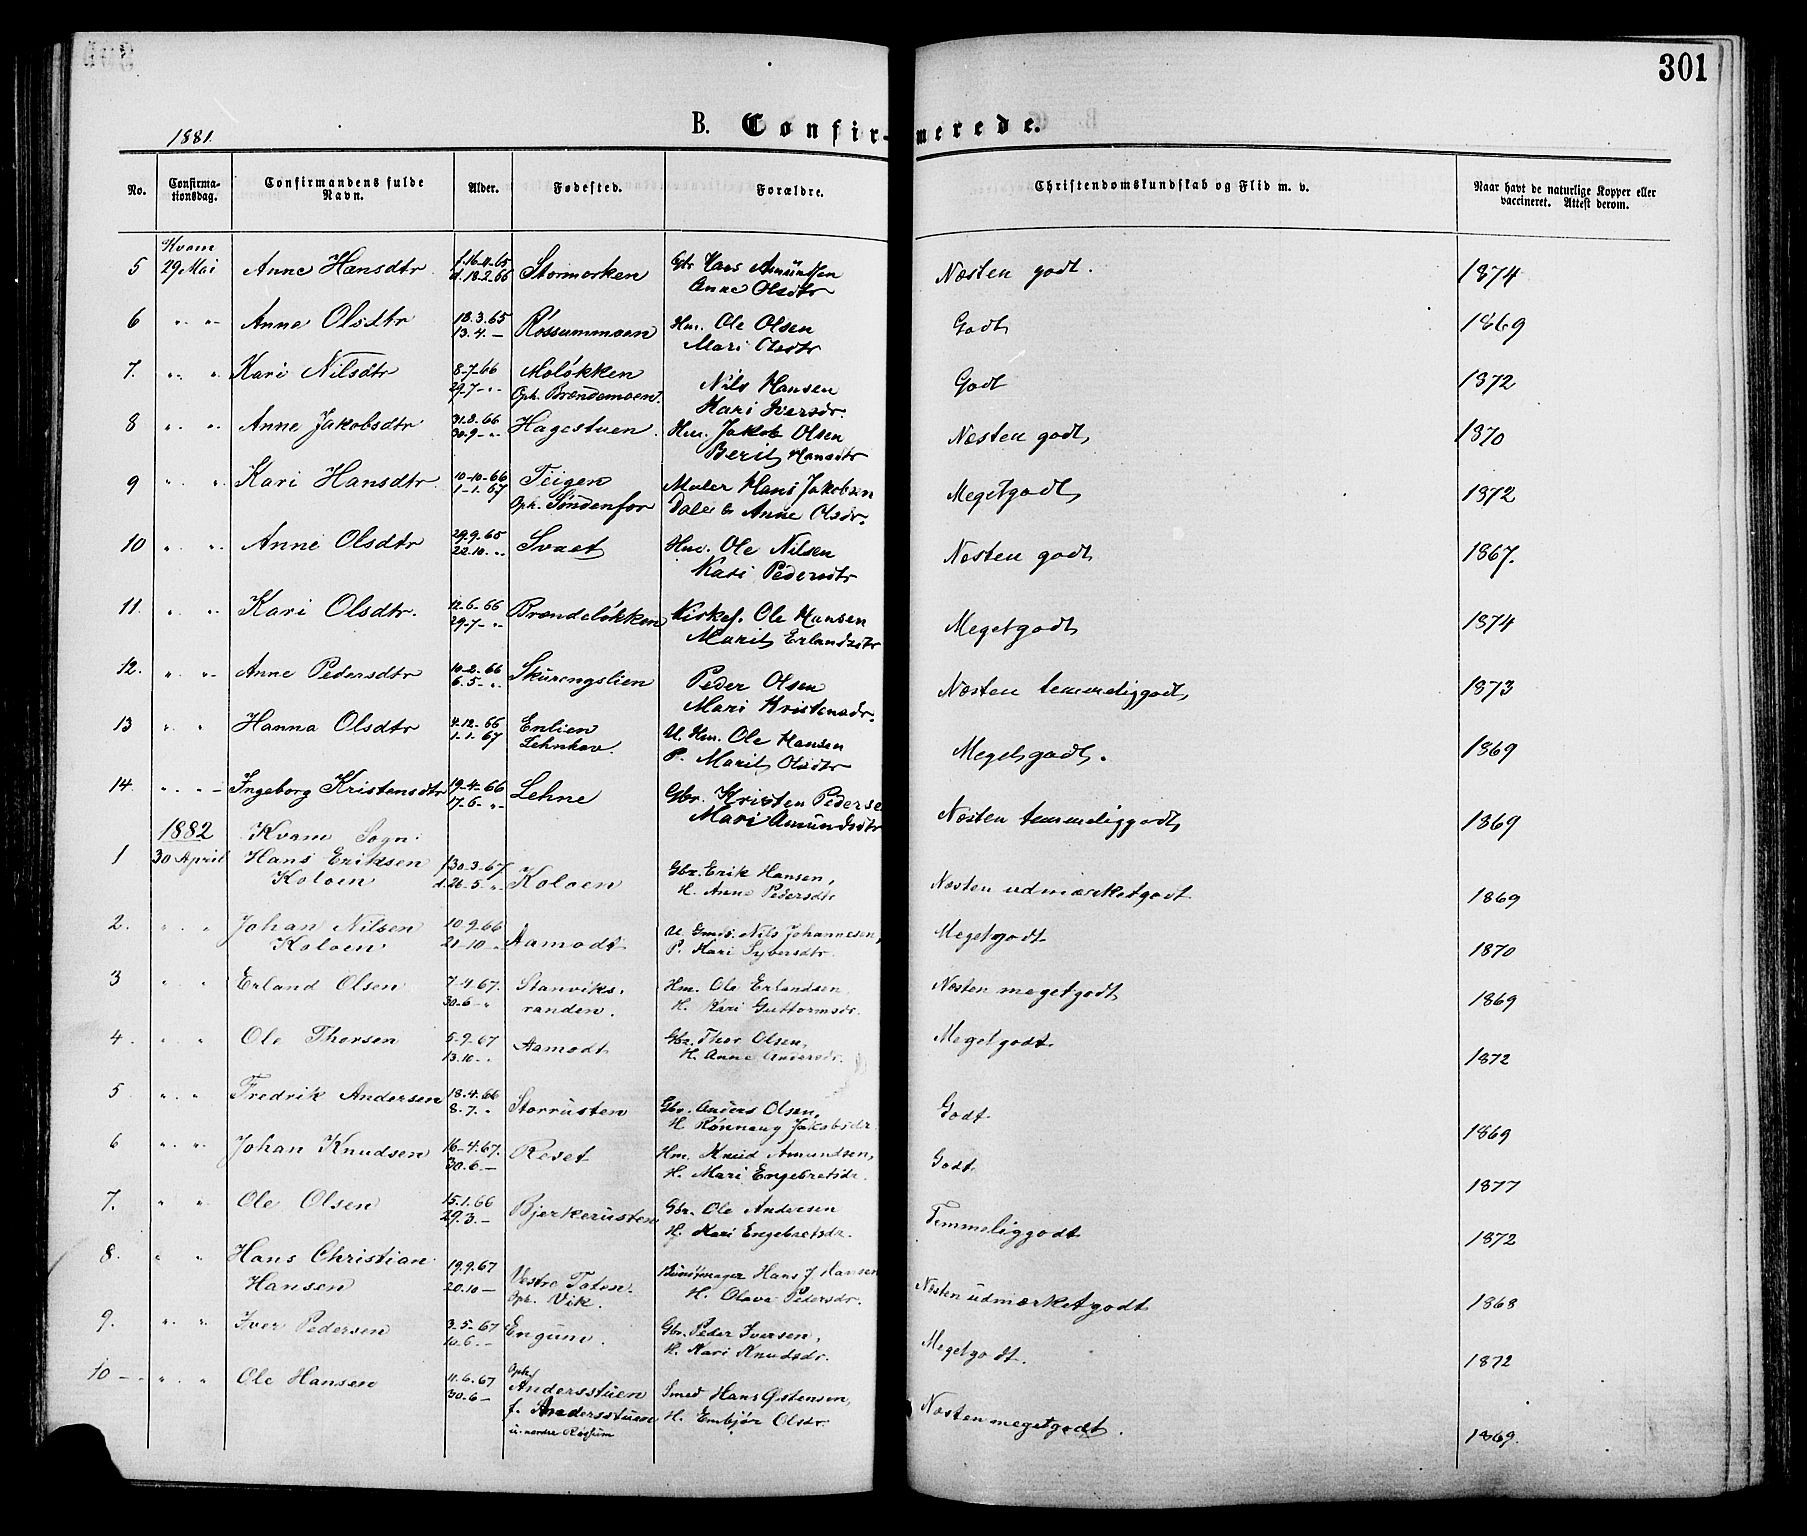 301
1881.
B. Confir-merede.
No. Confirma-tionsdag. Confirmandens fulde Navn. Alder. Fødested. Forældre. Christendomskundskab og Flid m. v. Naar havt de naturlige Kopper eller vaccineret. Attest derom.
Kvam
5 29 Mai Anne Hansdtr f. 16-4-65 Stormorken Gbr Hans Amundsen Næsten godt. 1874
d. 18-2-66 Anne Olsdtr
6 " " Anne Olsdtr 18.3.65 Røssummoen Hm. Ole Olsen Godt 1869
13.4.— Mari Olsdtr
7. " " Kari Nilsdtr 8-7.66 Moløkken Nils Hansen Godt 1872
29.7-"- Oph. Brændemoen. Kari Iversdr.
8 " " Anne Jakobsdtr 31.8.66 Hagestuen. Hm. Jakob Olsen Næsten godt, 1870
30.9-"- Berit Hansdtr
9 " " Kari Hansdtr. 10-10-66 Teigen Maler Hans Jakobsen Megetgodt, 1872
1-1.67 Oph. Søndenfor Dale & Anne Olsdr.
10 " " Anne Olsdtr 29.9.65 Svaet Hm. Ole Nilsen Næsten godt 1867.
22.10.". Kari Pedersdtr
11. " " Kari Olsdtr. 12-6-66 Brændeløkken Kirkes. Ole Hansen Megetgodt 1874
29-7-" Marit Erlandsdtr
12. " " Anne Pedersdtr 10-2-66 Skurengslien Peder Olsen Næsten temmeliggodt, 1873
6.5-". Mari Kristensdr.
13 " " Hanna Olsdtr 4.12.66 Enlien U. Hm. Ole Hansen Megetgodt. 1869
1-1.67 Lehnhov. P. Marit Olsdtr
14. " " Ingeborg Kristensdtr 19-4-66 Lehne Gbr. Kristen Pederse Næsten temmeliggodt, 1869
17.6-"- Mari Amundsdtr
1882 Kvam Sogn.
1 30 April Hans Eriksen f30-3-67 Koloen Gbr. Erik Hansen, Næsten udmærketgodt 1869
Koloen d. 26-5-" H. Anne Pedersdtr
2. " " Johan Nilsen 10.9.66 Aamodt U. Gmd. Nils Johannesen, Megetgodt 1870
Koloen. 21-10-" P. Kari Syversdtr.
3 " " Erland Olsen 7-4.67. Stanviks- Hm. Ole Erlandsen Næsten megetgodt 1869
30.6-" randen. H. Kari Guttormsdr.
4. " " Ole Thorsen 5-9.67 Aamodt Gbr. Thor Olsen, Megetgodt. 1872
13.10-". H. Anne Andersdr.
5 " " Fredrik Andersen 18.4.66 Storrusten Gbr. Anders Olsen, Godt 1869
8.7." H. Rønnaug Jakobsdr
6 " " Johan Knudsen 16-4.67. Reset Hm. Knud Amundsen, Godt 1877
30.6.— H. Mari Engebretsdr.
7. " " Ole Olsen 15.1.66 Bjerkerusten Gbr. Ole Andersen Temmeliggodt 1872
29.3.— H. Kari Engebretsdr.
8. " " Hans Christian 19.9.67 Vestre Toten Buntmager Hans J Hansen Næsten udmærketgodt 1868
Hansen 20.10— Oph. Vik. H. Olava Pedersdr.
9. " " Iver Pedersen 3.5-67 Engum. Gbr. Peder Iversen, Megetgodt. 1872
10.6.— H. Kari Knudsdr.
10 — " " Ole Hansen 11.6.67 Oph. Andersstuen Smed Hans Østensen, Næsten megetgodt. 1869.
30.6— f. Andersstuen H. Embjør Olsdr.
u. nordre Røssum